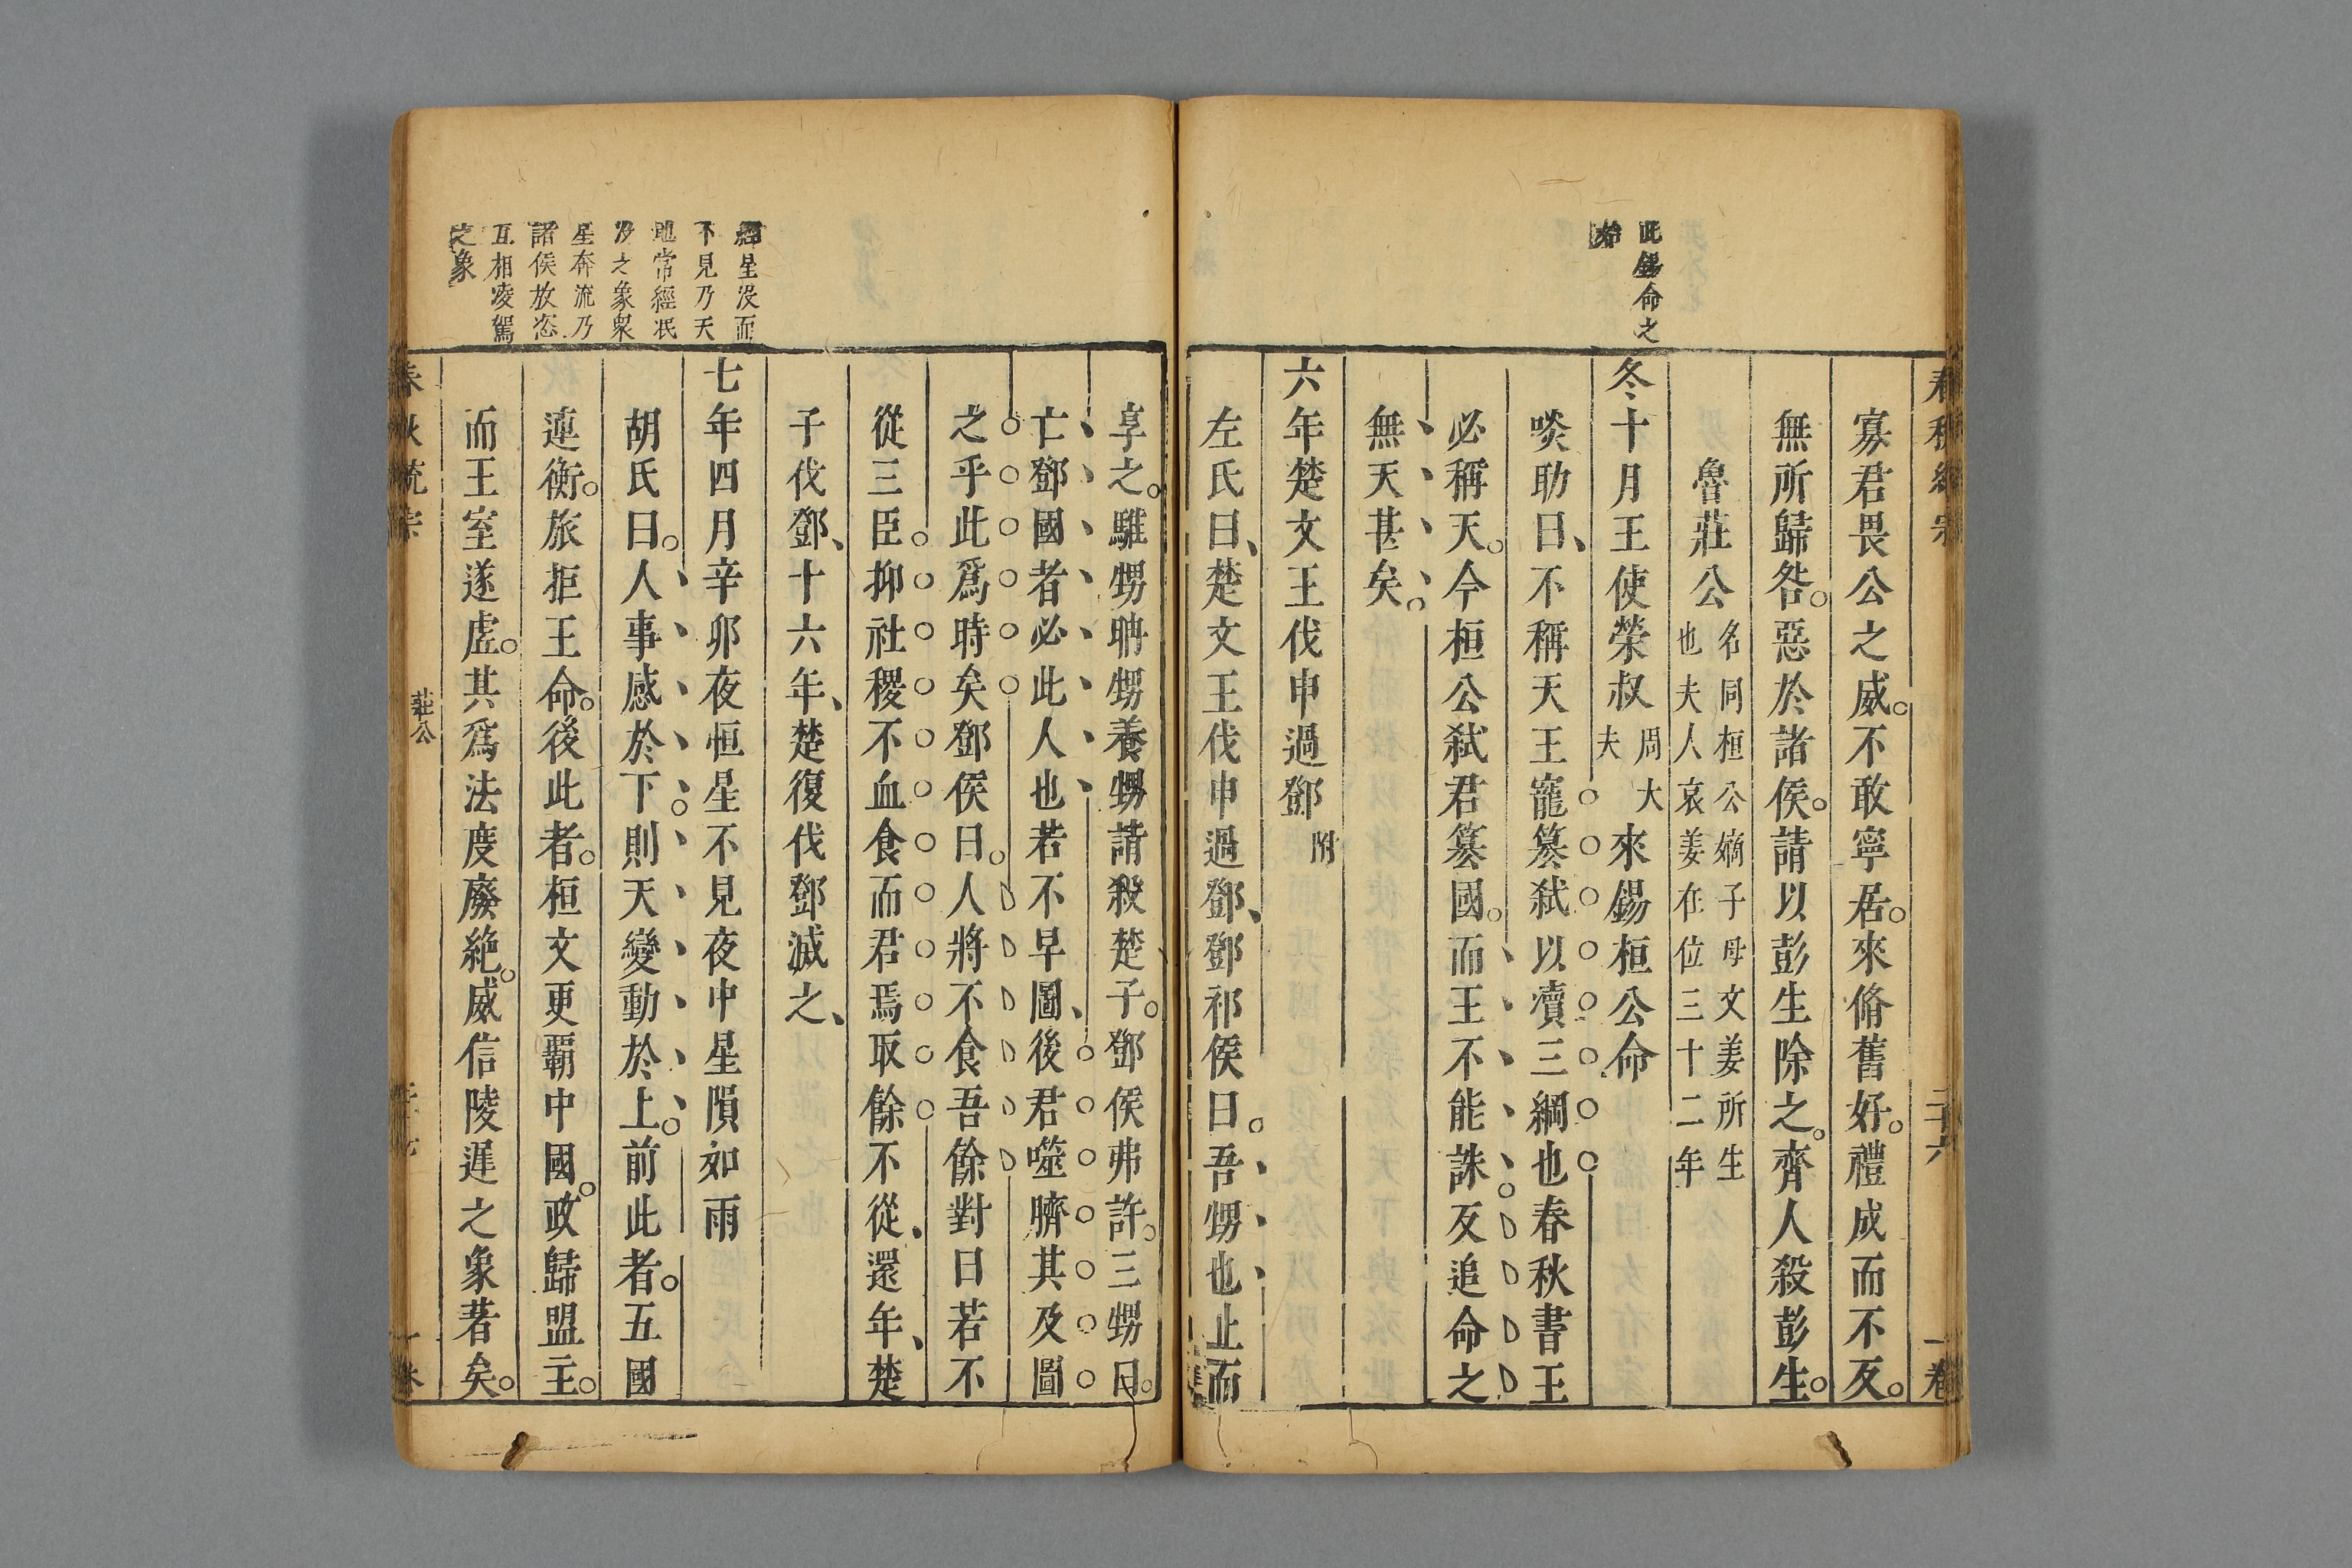 此錫命之
始
寡君畏公之威。不敢寧居。來脩舊好。禮成而不反。
無所歸咎。惡於諸侯。請以彭生除之。齊人殺彭生。
魯莊公
名同桓公嫡子母文姜所生
也夫人哀姜在位三十二年
冬十月王使榮叔
周大
夫
來錫桓公命
啖助曰、不稱天王寵篡弒以瀆三綱也春秋書王
必稱天。今桓公弒君篡國。而王不能誅反追命之
無天甚矣。
六年楚文王伐申過鄧
附
左氏曰、楚文王伐申過鄧、鄧祁侯曰。吾甥也止而
享之。騅甥聃甥養甥請殺楚子。鄧侯弗許。三甥曰。
亡鄧國者必此人也若不早圖、後君噬臍其及圖
之乎此爲時矣鄧侯曰。人將不食吾餘對曰若不
從三臣抑社稷不血食而君焉取餘不從、還年、楚
子伐鄧、十六年、楚復伐鄧滅之、
經星沒而
不見乃天
地常經泯
沒之象衆
星奔流乃
諸侯放恣
互相凌駕
之象
七年四月辛卯夜恒星不見夜中星隕如雨
胡氏曰。人事感於下則天變動於上。前此者。五國
連衡。旅拒王命。後此者。桓文更覇中國。政歸盟主。
而王室遂虛。其爲法度廢絶。威信陵遲之象著矣。
春秋統宗
莊公